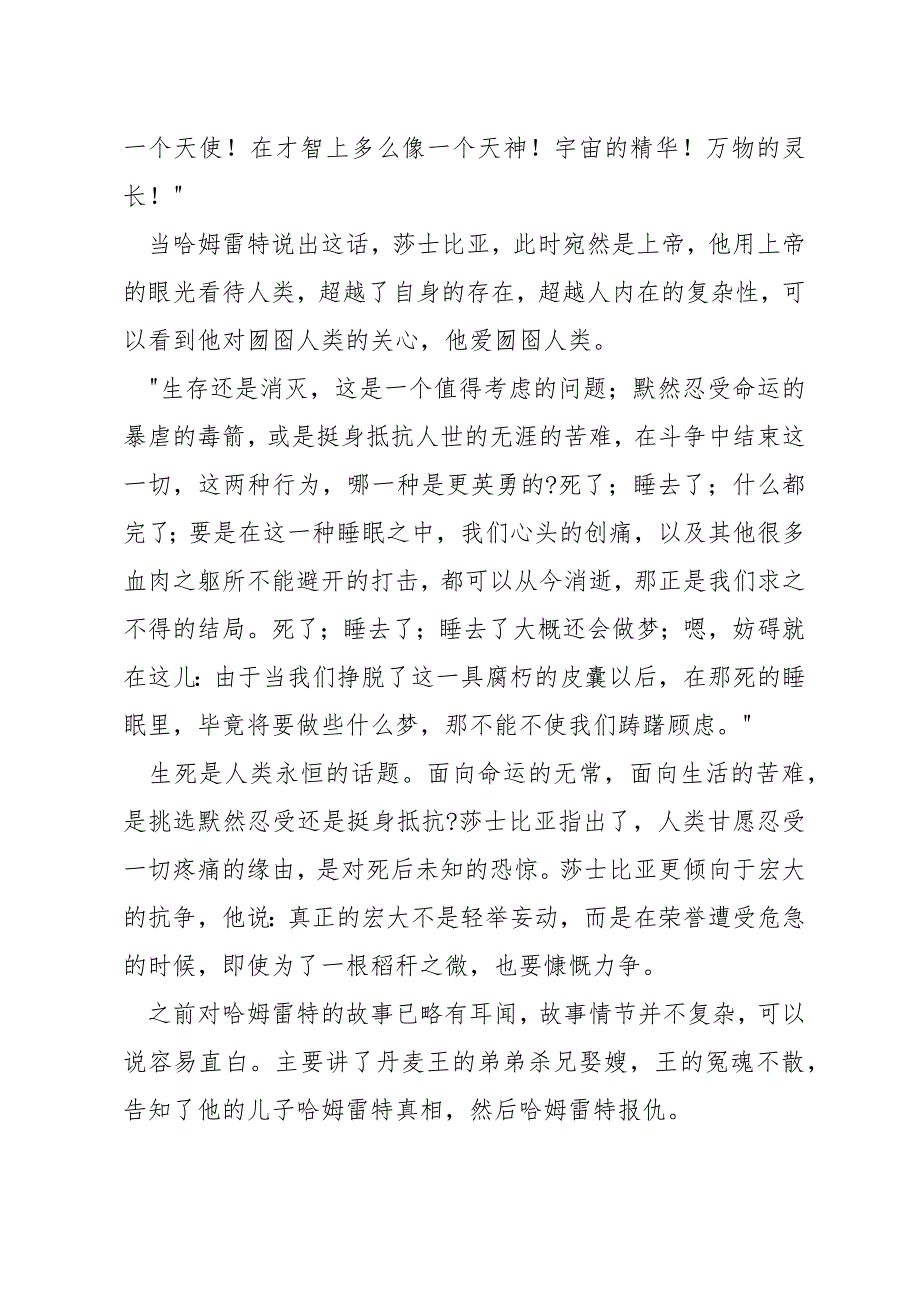 一个天使！在才智上多么像一个天神！宇宙的精华！万物的灵
长！"
当哈姆雷特说出这话，莎士比亚，此时宛然是上帝，他用上帝
的眼光看待人类，超越了自身的存在，超越人内在的复杂性，可
以看到他对囫囵人类的关心，他爱囫囵人类。
"生存还是消灭，这是一个值得考虑的问题；默然忍受命运的
暴虐的毒箭，或是挺身抵抗人世的无涯的苦难，在斗争中结束这
一切，这两种行为，哪一种是更英勇的?死了；睡去了；什么都
完了；要是在这一种睡眠之中，我们心头的创痛，以及其他很多
血肉之躯所不能避开的打击，都可以从今消逝，那正是我们求之
不得的结局。死了；睡去了；睡去了大概还会做梦；嗯，妨碍就
在这儿：由于当我们挣脱了这一具腐朽的皮囊以后，在那死的睡
眠里，毕竟将要做些什么梦，那不能不使我们踌躇顾虑。"
生死是人类永恒的话题。面向命运的无常，面向生活的苦难，
是挑选默然忍受还是挺身抵抗?莎士比亚指出了，人类甘愿忍受
一切疼痛的缘由，是对死后未知的恐惊。莎士比亚更倾向于宏大
的抗争，他说：真正的宏大不是轻举妄动，而是在荣誉遭受危急
的时候，即使为了一根稻秆之微，也要慷慨力争。
之前对哈姆雷特的故事已略有耳闻，故事情节并不复杂，可以
说容易直白。主要讲了丹麦王的弟弟杀兄娶嫂，王的冤魂不散，
告知了他的儿子哈姆雷特真相，然后哈姆雷特报仇。